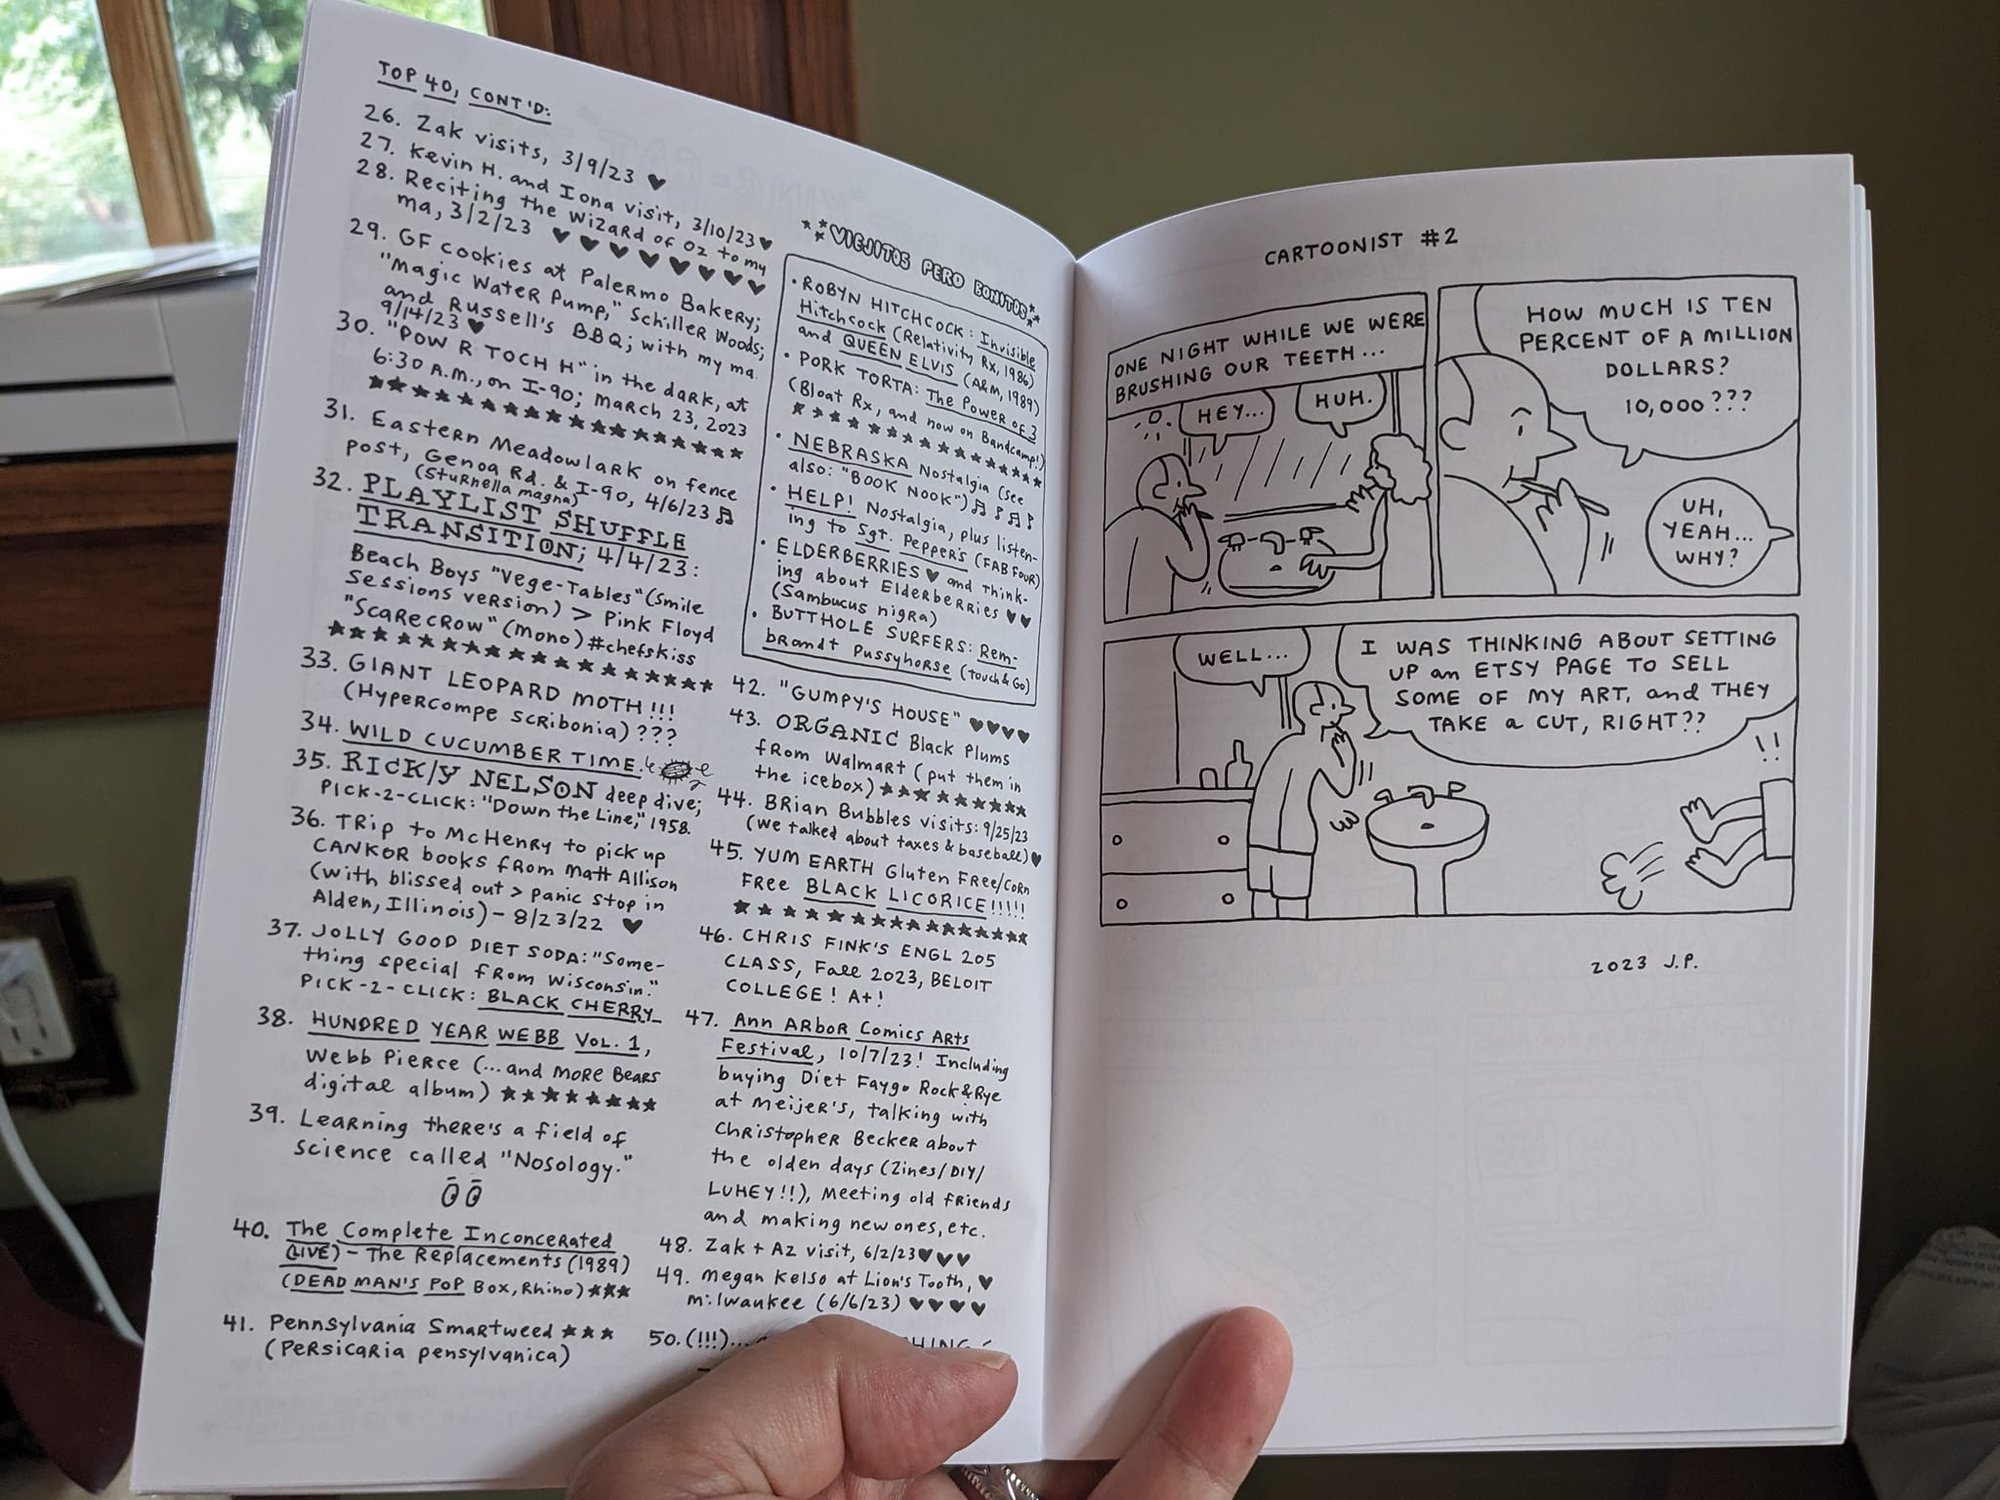 TOP 40, CONT'D:
26. Zak visits, 3/9/23 ♥
27. Kevin H. and Iona visit, 3/10/23 ♥
28. Reciting the Wizard of Oz to my
ma, 3/2/23 ♥ ♥ ♥ ♥ ♥ ♥ ♥ ♥
29. GF cookies at Palermo Bakery;
"Magic Water Pump," Schiller Woods;
and Russell's BBQ; with my ma.
9/14/23 ♥
30. "POW R TOCH H" in the dark, at
6:30 A.M., on I-90; March 23, 2023
★★★★★★★★★★★★★★★★★
31. Eastern Meadowlark on fence
post, Genoa Rd. & I-90, 4/6/23 ♫
(Sturnella magna)
32. PLAYLIST SHUFFLE
TRANSITION; 4/4/23:
Beach Boys "Vege-Tables" (Smile
Sessions version) > Pink Floyd
"Scarecrow" (mono) #chefskiss
★★★★★★★★★★★★★★★★★
33. GIANT LEOPARD MOTH!!!
(Hypercompe scribonia) ???
34. WILD CUCUMBER TIME.
35. RICK/Y NELSON deep dive;
PICK-2-CLICK: "Down the Line," 1958.
36. TRIP to McHENRY to pick up
CANKOR books from Matt Allison
(with blissed out > panic stop in
Alden, Illinois) - 8/23/22 ♥
37. JOLLY GOOD DIET SODA: "Some-
thing special from Wisconsin."
PICK-2-CLICK: BLACK CHERRY
38. HUNDRED YEAR WEBB Vol. 1,
Webb Pierce (...and more Bears
digital album) ★★★★★★★★
39. Learning there's a field of
science called "Nosology."
40. The Complete Inconcerated
(LIVE) - The Replacements (1989)
(DEAD MAN'S POP Box, Rhino) ★★★
41. Pennsylvania Smartweed ★★★
(Persicaria pensylvanica)
VIEJITOS PERO BONITOS
• ROBYN HITCHCOCK: Invisible
Hitchcock (Relativity Rx, 1986)
and QUEEN ELVIS (A&M, 1989)
• PORK TORTA: The Power of 3
(Bloat Rx, and now on Bandcamp!)
★★★★★★★★★★★★★★★★
• NEBRASKA Nostalgia (see
also: "BOOK NOOK") ♫ ♪ ♫ ♪
• HELP! Nostalgia, plus listen-
ing to Sgt. Pepper's (FAB FOUR)
• ELDERBERRIES ♥ and think-
ing about Elderberries ♥ ♥
(Sambucus nigra)
• BUTTHOLE SURFERS: Rem-
brandt Pussyhorse (Touch & Go)
42. "GUMPY'S HOUSE" ♥♥♥♥
43. ORGANIC Black Plums
from Walmart (put them in
the icebox) ★★★★★★★★★★
44. Brian Bubbles visits: 9/25/23
(we talked about taxes & baseball) ♥
45. YUM EARTH Gluten Free/Corn
Free BLACK LICORICE!!!!!
★★★★★★★★★★★★★★★
46. CHRIS FINK'S ENGL 205
CLASS, Fall 2023, BELOIT
COLLEGE! A+!
47. Ann Arbor Comics Arts
Festival, 10/7/23! Including
buying Diet Faygo Rock&Rye
at Meijer's, talking with
Christopher Becker about
the olden days (Zines/DIY/
LUHEY!!), meeting old friends
and making new ones, etc.
48. Zak + Az visit, 6/2/23 ♥♥♥
49. Megan Kelso at Lion's Tooth, ♥
Milwaukee (6/6/23) ♥♥♥♥
50. (!!!)...
CARTOONIST #2
ONE NIGHT WHILE WE WERE
BRUSHING OUR TEETH...
HEY...
HUH.
HOW MUCH IS TEN
PERCENT OF A MILLION
DOLLARS?
10,000???
UH,
YEAH...
WHY?
WELL...
I WAS THINKING ABOUT SETTING
UP an ETSY PAGE TO SELL
SOME OF MY ART, and THEY
TAKE a CUT, RIGHT??
!!
2023 J.P.